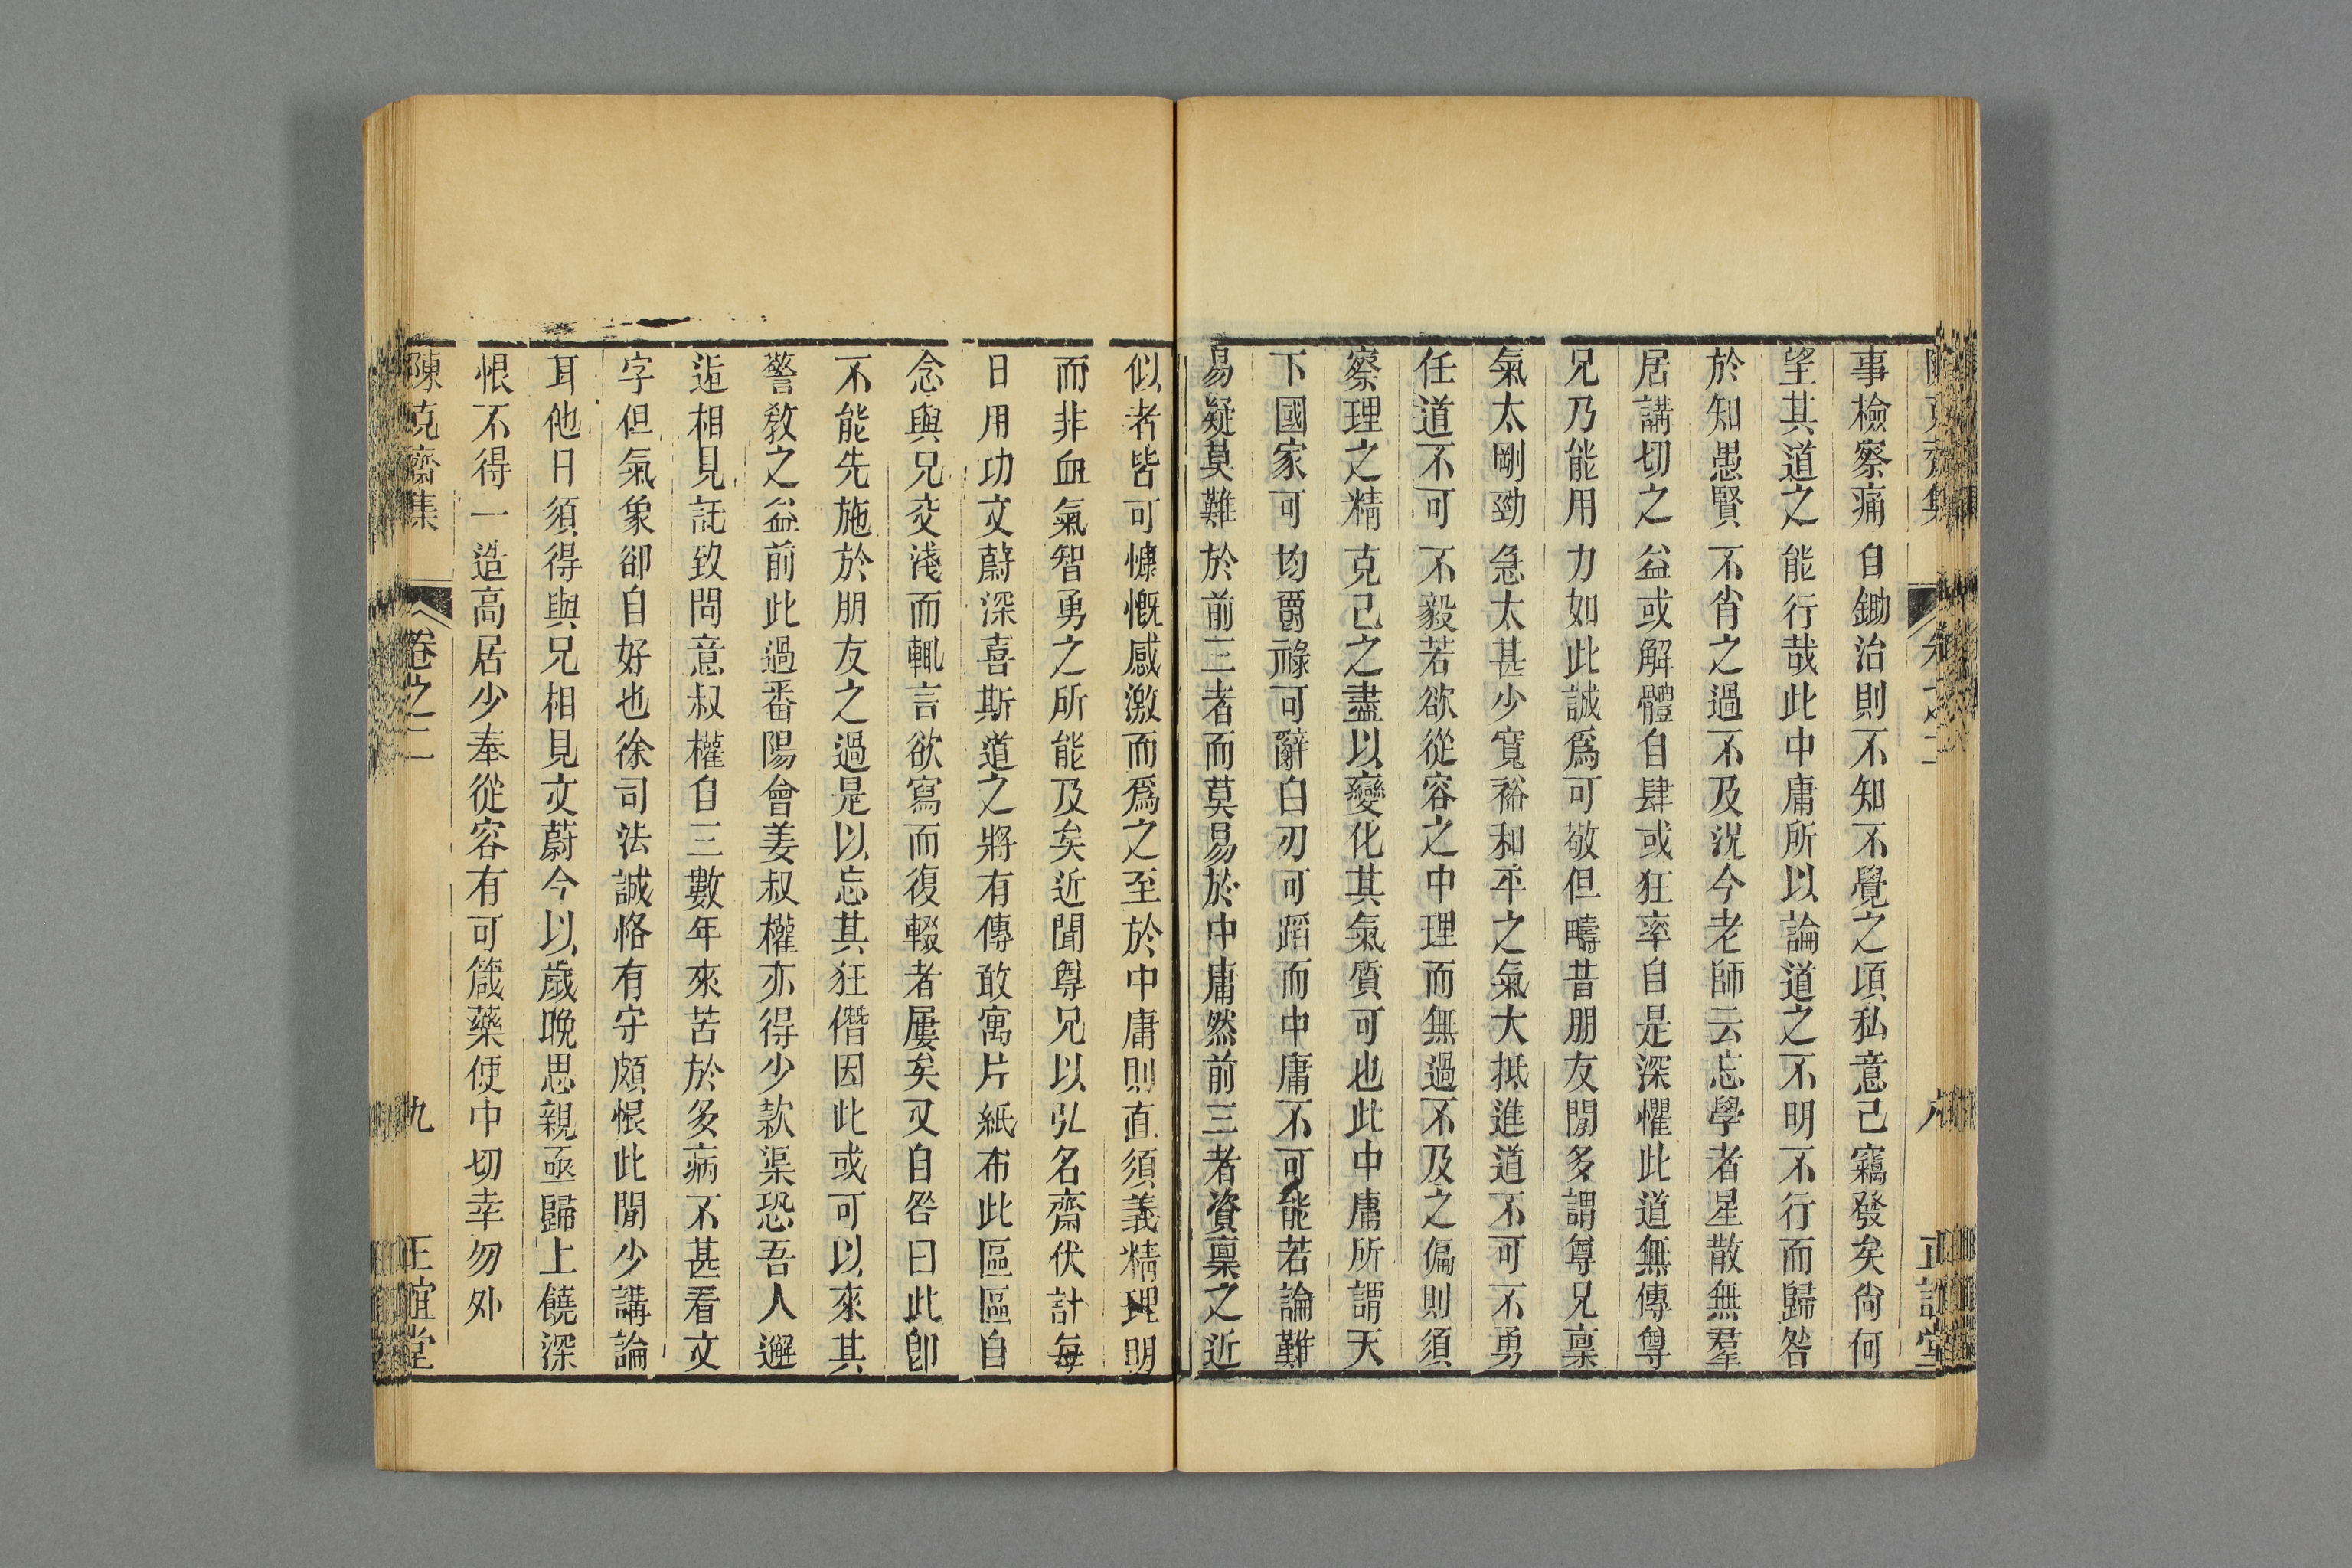 事檢察痛自鋤治則不知不覺之頃私意己竊發矣尙何
望其道之能行哉此中庸所以論道之不明不行而歸咎
於知愚賢不肖之過不及況今老師云忘學者星散無羣
居講切之益或解體自肆或狂率自是深懼此道無傳尊
兄乃能用力如此誠爲可敬但疇昔朋友閒多謂尊兄稟
氣太剛勁急太甚少寬裕和平之氣大抵進道不可不勇
任道不可不毅若欲從容之中理而無過不及之偏則須
察理之精克己之盡以變化其氣質可也此中庸所謂天
下國家可均爵祿可辭白刃可蹈而中庸不可能若論難
易疑莫難於前三者而莫易於中庸然前三者資稟之近
似者皆可慷慨感激而爲之至於中庸則直須義精理明
而非血氣智勇之所能及矣近聞尊兄以弘名齋伏計每
日用功文蔚深喜斯道之將有傳敢寓片紙布此區區自
念與兄交淺而輒言欲寫而復輟者屢矣又自咎曰此卽
不能先施於朋友之過是以忘其狂僭因此或可以來其
警敎之益前此過番陽會姜叔權亦得少款渠恐吾人邂
逅相見託致問意叔權自三數年來苦於多病不甚看文
字但氣象卻自好也徐司法誠恪有守頗恨此閒少講論
耳他日須得與兄相見文蔚今以歲晚思親亟歸上饒深
恨不得一造高居少奉從容有可箴藥便中切幸勿外
陳克齋集 卷之二 九 正誼堂